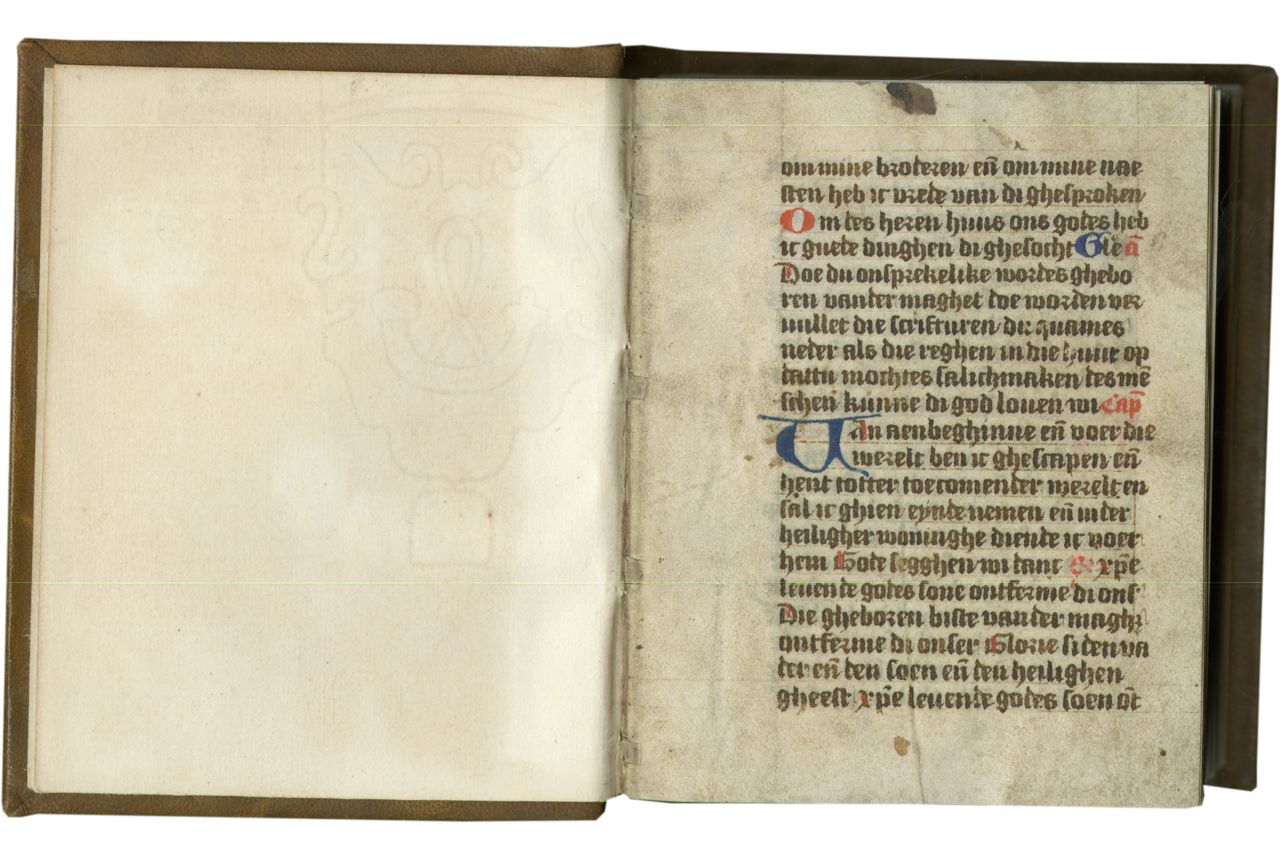 om mine broteren en̄ om mine nae
sten heb ic vrede van di ghesproken
Om des heren huus ons godes heb
ic guede dinghen di ghesocht Gle an̄
Doe du onsprekelike wordes ghebo
ren vander maghet doe worden ver
uullet die scrifturen du quames
neder als die reghen in die huut op
dattu mochtes salichmaken des mē
schen kunne di god louen wi Cap̄
Uan aenbeghinne en̄ voer die
werelt ben ic ghescapen en̄
hent totter toecomender werelt en
sal ic ghien eynde nemen en̄ in der
heiligher woninghe diende ic voer
hem Gode segghen wi danc xp̄e
leuende godes sone ontferme di ons
Die gheboren biste vander magh
ontferme di onser Glorie si den va
der en̄ den soen en̄ den heilighen
gheest xp̄e leuende godes soen ōt